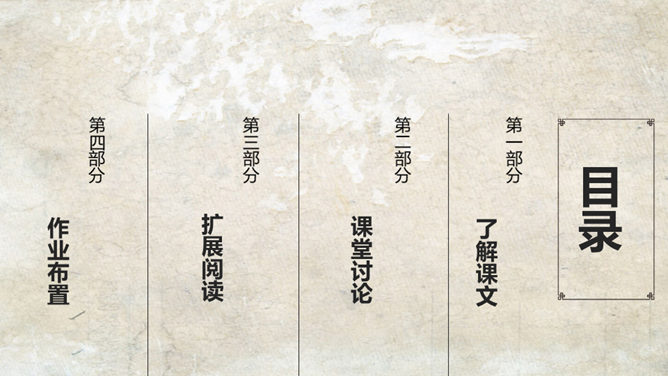 目录
第一部分
了解课文
第二部分
课堂讨论
第三部分
扩展阅读
第四部分
作业布置